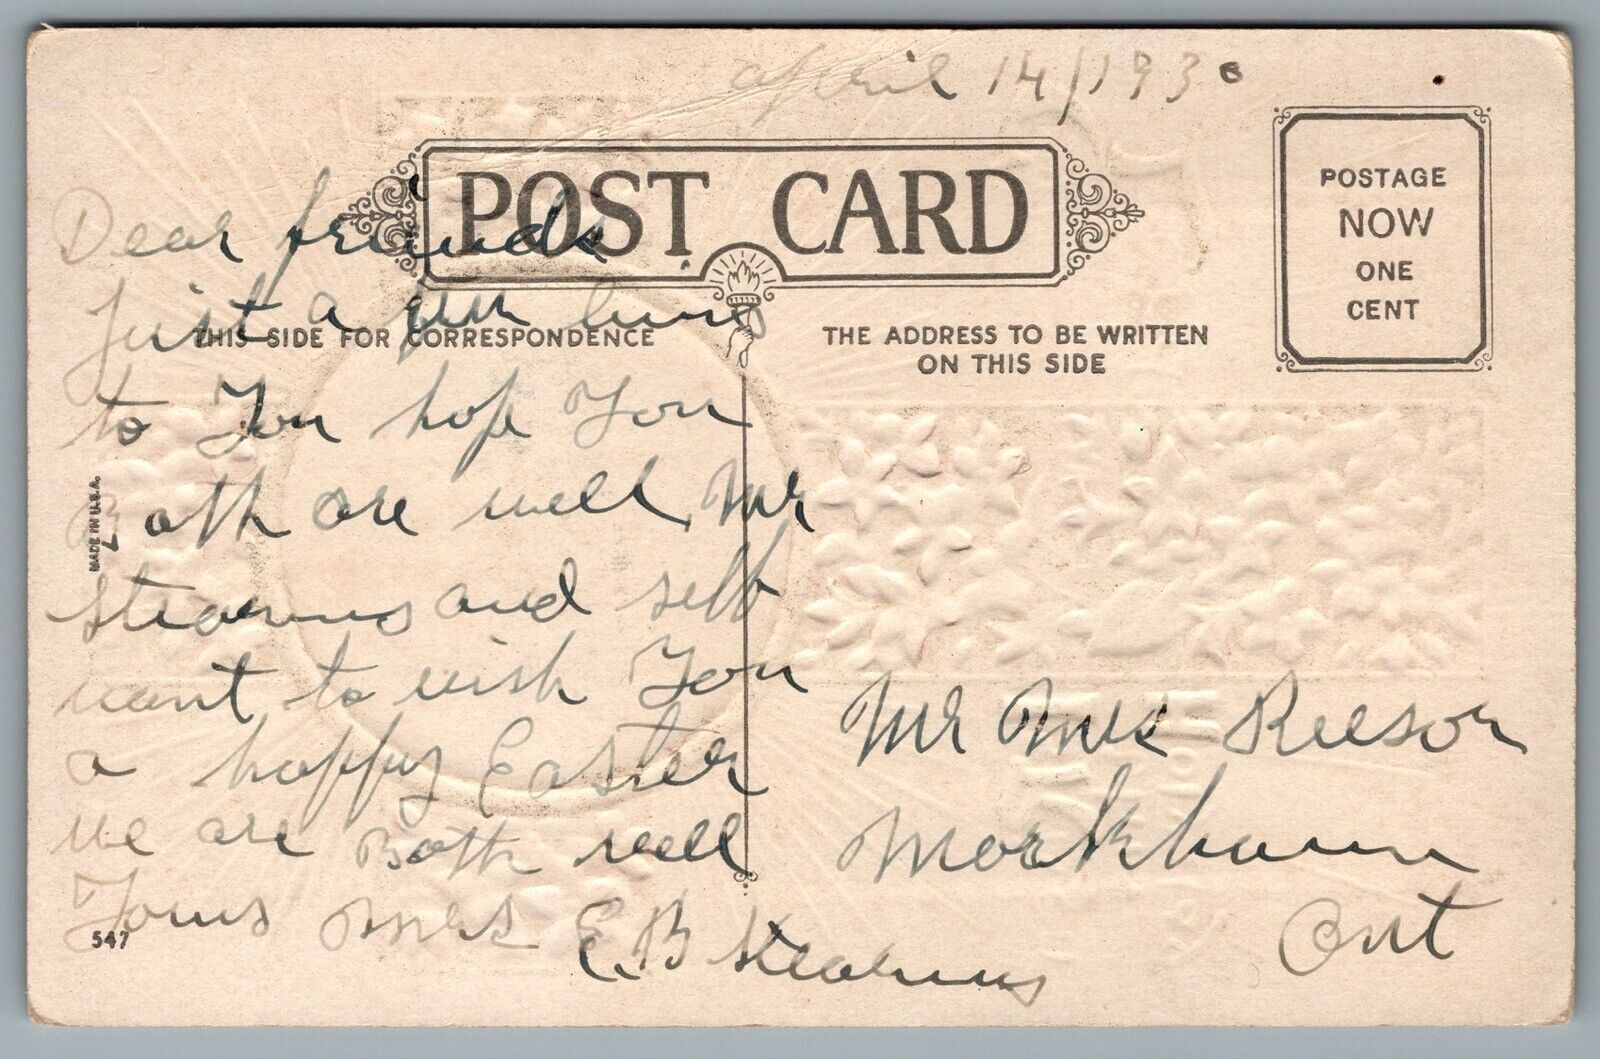 April 14/1930
POST CARD
POSTAGE
NOW
ONE
CENT
THIS SIDE FOR CORRESPONDENCE
THE ADDRESS TO BE WRITTEN
ON THIS SIDE
Dear friends
Just a few lines
to You hope You
Both are well Mr
Stearns and self
want to wish You
a happy Easter
we are Both well
Yours Mrs E.B Stearns
Mr Mrs Reesor
Markham
Ont
MADE IN U.S.A.
547